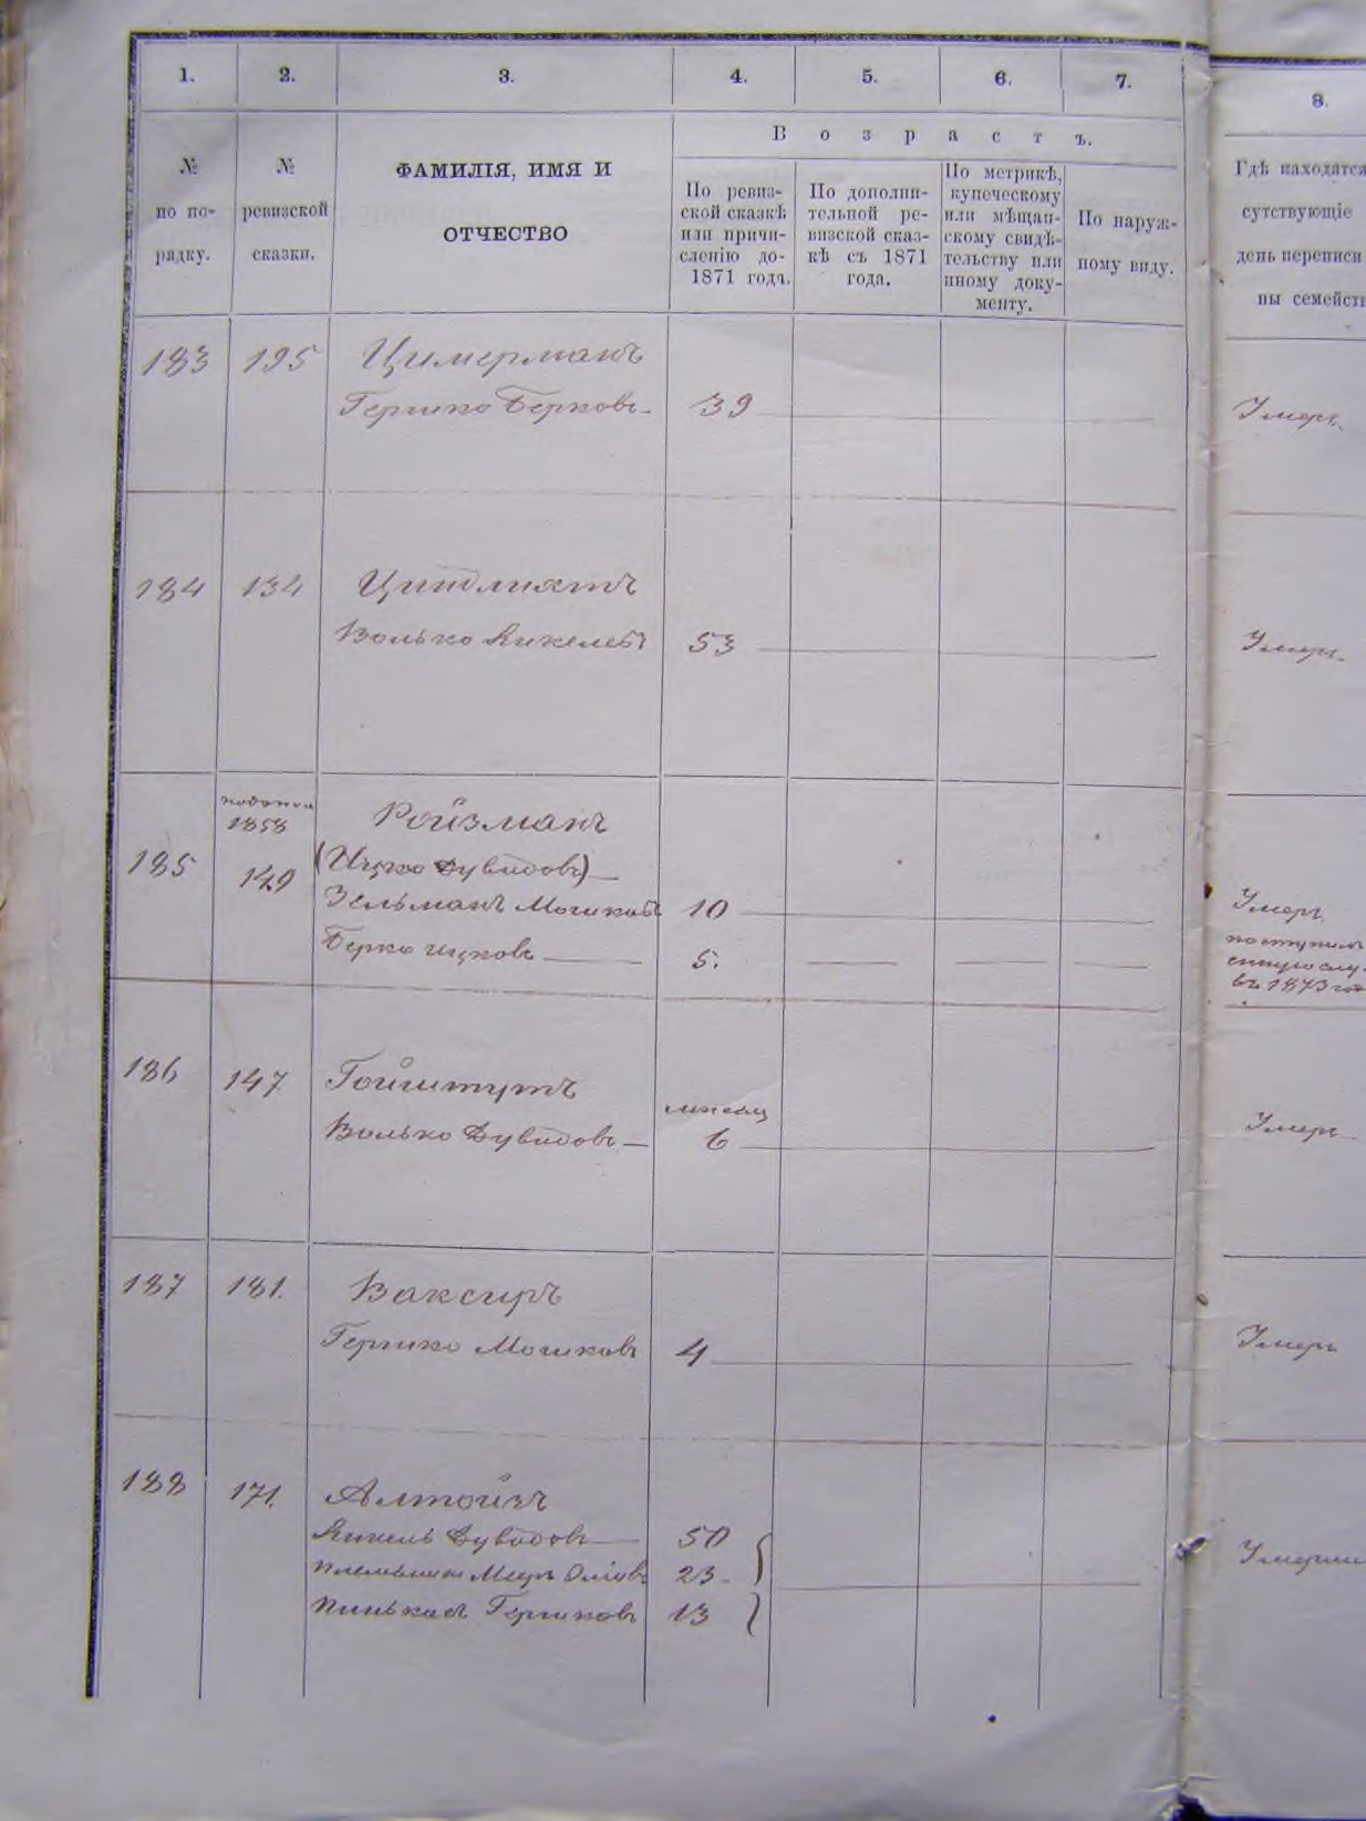 1. 2. 3. 4. 5. 6. 7. 8.
Возрастъ.
№
по по-
рядку.
№
ревизской
сказки.
ФАМИЛІЯ, ИМЯ И
ОТЧЕСТВО
По ревиз-
ской сказкѣ
или причи-
сленію до-
1871 года.
По дополни-
тельной ре-
визской сказ-
кѣ съ 1871
года.
По метрикѣ,
купеческому
или мѣщан-
скому свидѣ-
тельству или
иному доку-
менту.
По наруж-
ному виду.
Гдѣ находятся
сутствующіе
день переписи
ны семейств
183 195 Цимерманъ
Гершко Берковъ 39 Умеръ.
184 134 Циндлихтъ
Волько Янкелевъ 53 Умеръ.
1858 Ройзманъ
185 149 (Ицко Дувидовъ)
Зельманъ Мошковъ 10 Умеръ
Берко Ицковъ 5. поступилъ
въ 1873 год
186 147 Гойштутъ
месяц
Волько Дувидовъ 6 Умеръ
187 181. Ваксиръ
Гершко Мошковъ 4 Умеръ
188 171. Алтойзъ
Янкель Дувидовъ 50
племянник Меер 23 Умерши
Пинькас Гершковъ 13